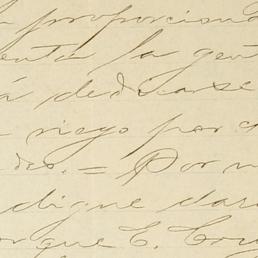 proporciona
enta la gent
á dedicarse
riego por
des. = Por
digne dar
porque E. Cor